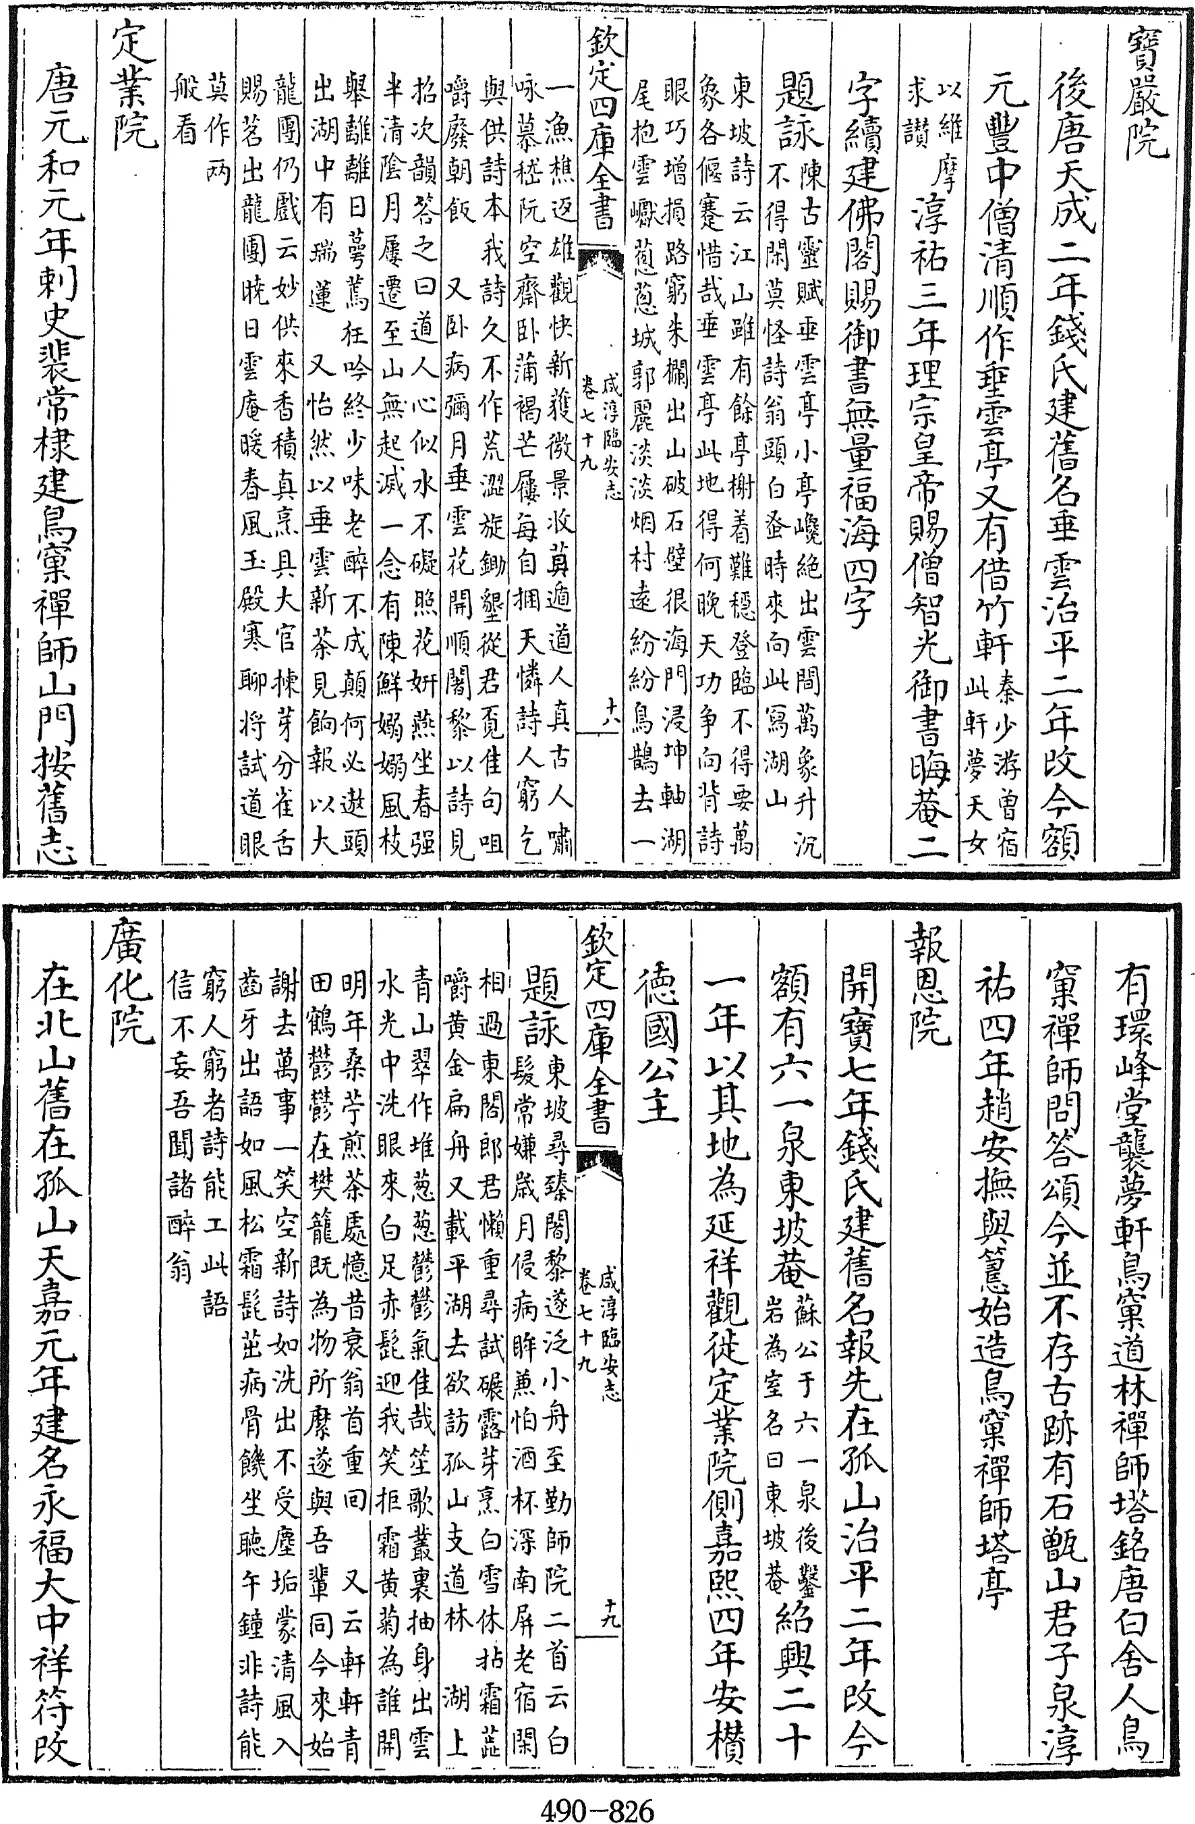 寶嚴院
後唐天成二年錢氏建舊名垂雲治平二年改今額
元豐中僧清順作垂雲亭又有借竹軒秦少游曾宿
此軒夢天女
以維摩
求讃
淳祐三年理宗皇帝賜僧智光御書晦菴二
字續建佛閣賜御書無量福海四字
題詠
陳古靈賦垂雲亭小亭巉絶出雲間萬象升沉
不得閑莫怪詩翁頭白蚤時來向此寫湖山
東坡詩云江山雖有餘亭榭着難穩登臨不得要萬
象各偃蹇惜哉垂雲亭此地得何晚天功争向背詩
眼巧增損路窮朱欄出山破石壁很海門浸坤軸湖
尾抱雲巘蔥蔥城郭麗淡淡烟村遠紛紛鳥鵲去一
欽定四庫全書
咸淳臨安志
卷七十九
十八
一漁樵返雄觀快新獲微景收莫遁道人真古人嘯
咏慕嵇阮空齋卧蒲褐芒屨每自捆天憐詩人窮乞
與供詩本我詩久不作荒澀旋鋤墾從君覔佳句咀
嚼廢朝飯　又卧病彌月垂雲花開順闍黎以詩見
招次韻答之曰道人心似水不礙照花妍燕坐春强
半清陰月屢遷至山無起減一念有陳鮮嫋嫋風枝
舉離離日蕚蔫狂吟終少味老醉不成顛何必遨頭
出湖中有瑞蓮　又怡然以垂雲新茶見餉報以大
龍團仍戲云妙供來香積真烹具大官揀芽分雀舌
賜茗出龍團曉日雲庵暖春風玉殿寒聊將試道眼
莫作兩
般看
定業院
唐元和元年刺史裴常棣建鳥窠禪師山門按舊志
有環峰堂襲夢軒鳥窠道林禪師塔銘唐白舍人鳥
窠禪師問答頌今並不存古跡有石甑山君子泉淳
祐四年趙安撫與𥲅始造鳥窠禪師塔亭
報恩院
開寶七年錢氏建舊名報先在孤山治平二年改今
額有六一泉東坡菴蘇公于六一泉後鑿
岩為室名曰東坡菴
紹興二十
一年以其地為延祥觀徙定業院側嘉熙四年安欑
德國公主
欽定四庫全書
咸淳臨安志
卷七十九
十九
題詠
東坡尋臻闍黎遂泛小舟至勤師院二首云白
髮常嫌歲月侵病眸兼怕酒杯深南屏老宿閑
相過東閣郎君懶重尋試碾露芽烹白雪休拈霜蕋
嚼黄金扁舟又載平湖去欲訪孤山支道林　湖上
青山翠作堆蔥蔥鬱鬱氣佳哉笙歌叢裏抽身出雲
水光中洗眼來白足赤髭迎我笑拒霜黄菊為誰開
明年桑苧煎茶處憶昔衰翁首重回　又云軒軒青
田鶴鬱鬱在樊籠既為物所縻遂與吾輩同今來始
謝去萬事一笑空新詩如洗出不受塵垢蒙清風入
齒牙出語如風松霜髭茁病骨饑坐聽午鐘非詩能
窮人窮者詩能工此語
信不妄吾聞諸醉翁
廣化院
在北山舊在孤山天嘉元年建名永福大中祥符改
490-826